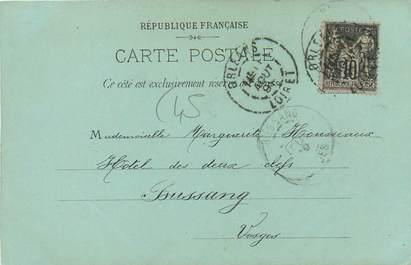 RÉPUBLIQUE FRANÇAISE
CARTE POSTALE
Ce côté est exclusivement réservé
ORLEANS
AOUT
LOIRET
POSTE
10
(45
Mademoiselle Marguerite Housseaux
Hôtel des deux clefs
Bussang
Vosges